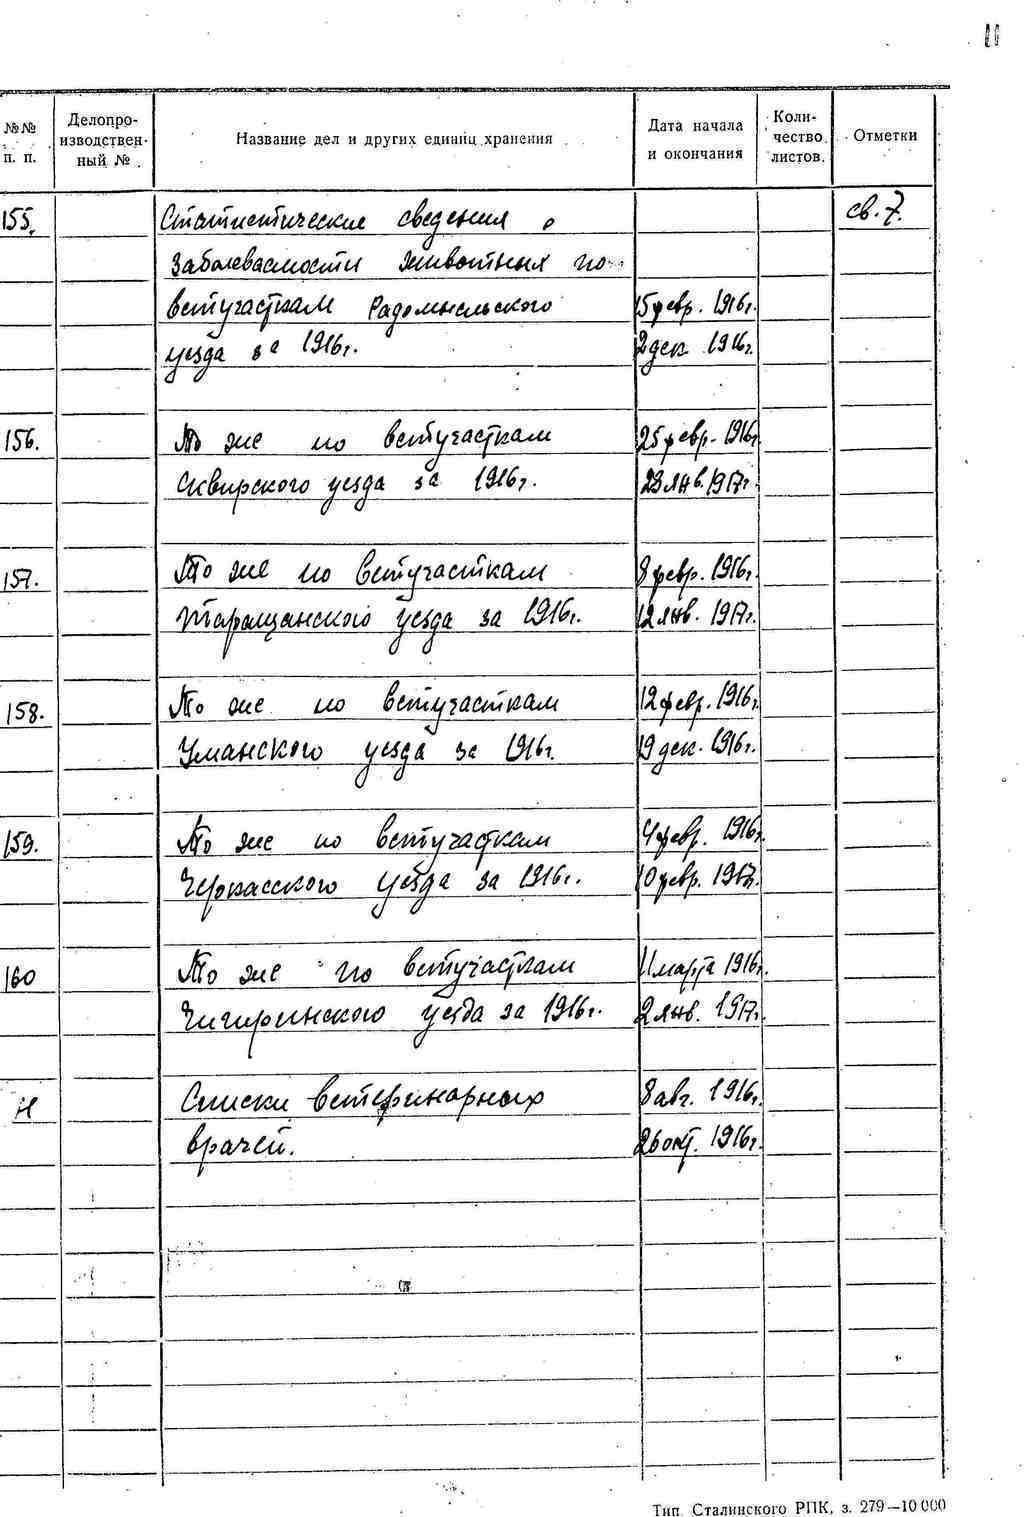 11
№№ п. п.
Делопро-
изводствен-
ный №
Название дел и других единиц хранения
Дата начала
и окончания
Коли-
чество
листов.
Отметки
155. Статистические сведения о св. 7.
заболеваемости животных по
ветучасткам Радомысльского 15 февр. 1916г.
уезда за 1916г. 2 дек. 1916г.
156. То же по ветучасткам 25 февр. 1916г.
Сквирского уезда за 1916г. 23 янв. 1917г.
157. То же по ветучасткам 8 февр. 1916г.
Таращанского уезда за 1916г. 12 янв. 1917г.
158. То же по ветучасткам 12 февр. 1916г.
Уманского уезда за 1916г. 19 дек. 1916г.
159. То же по ветучасткам 4 февр. 1916г.
Черкасского уезда за 1916г. 10 февр. 1917г.
160 То же по ветучасткам 11 марта 1916г.
Чигиринского уезда за 1916г. 2 янв. 1917г.
Списки ветеринарных 8 авг. 1916г.
врачей. 26 окт. 1916г.
Тип. Сталинского РПК, з. 279—10 000